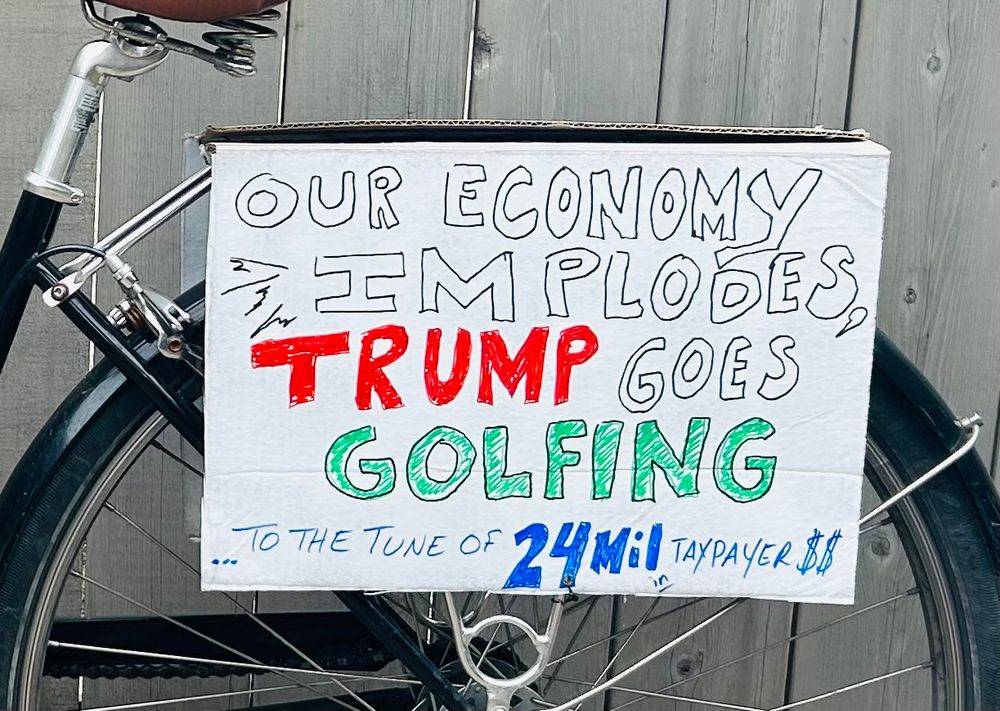 OUR ECONOMY
IMPLODES,
TRUMP GOES
GOLFING
... TO THE TUNE OF 24 Mil in TAXPAYER $$